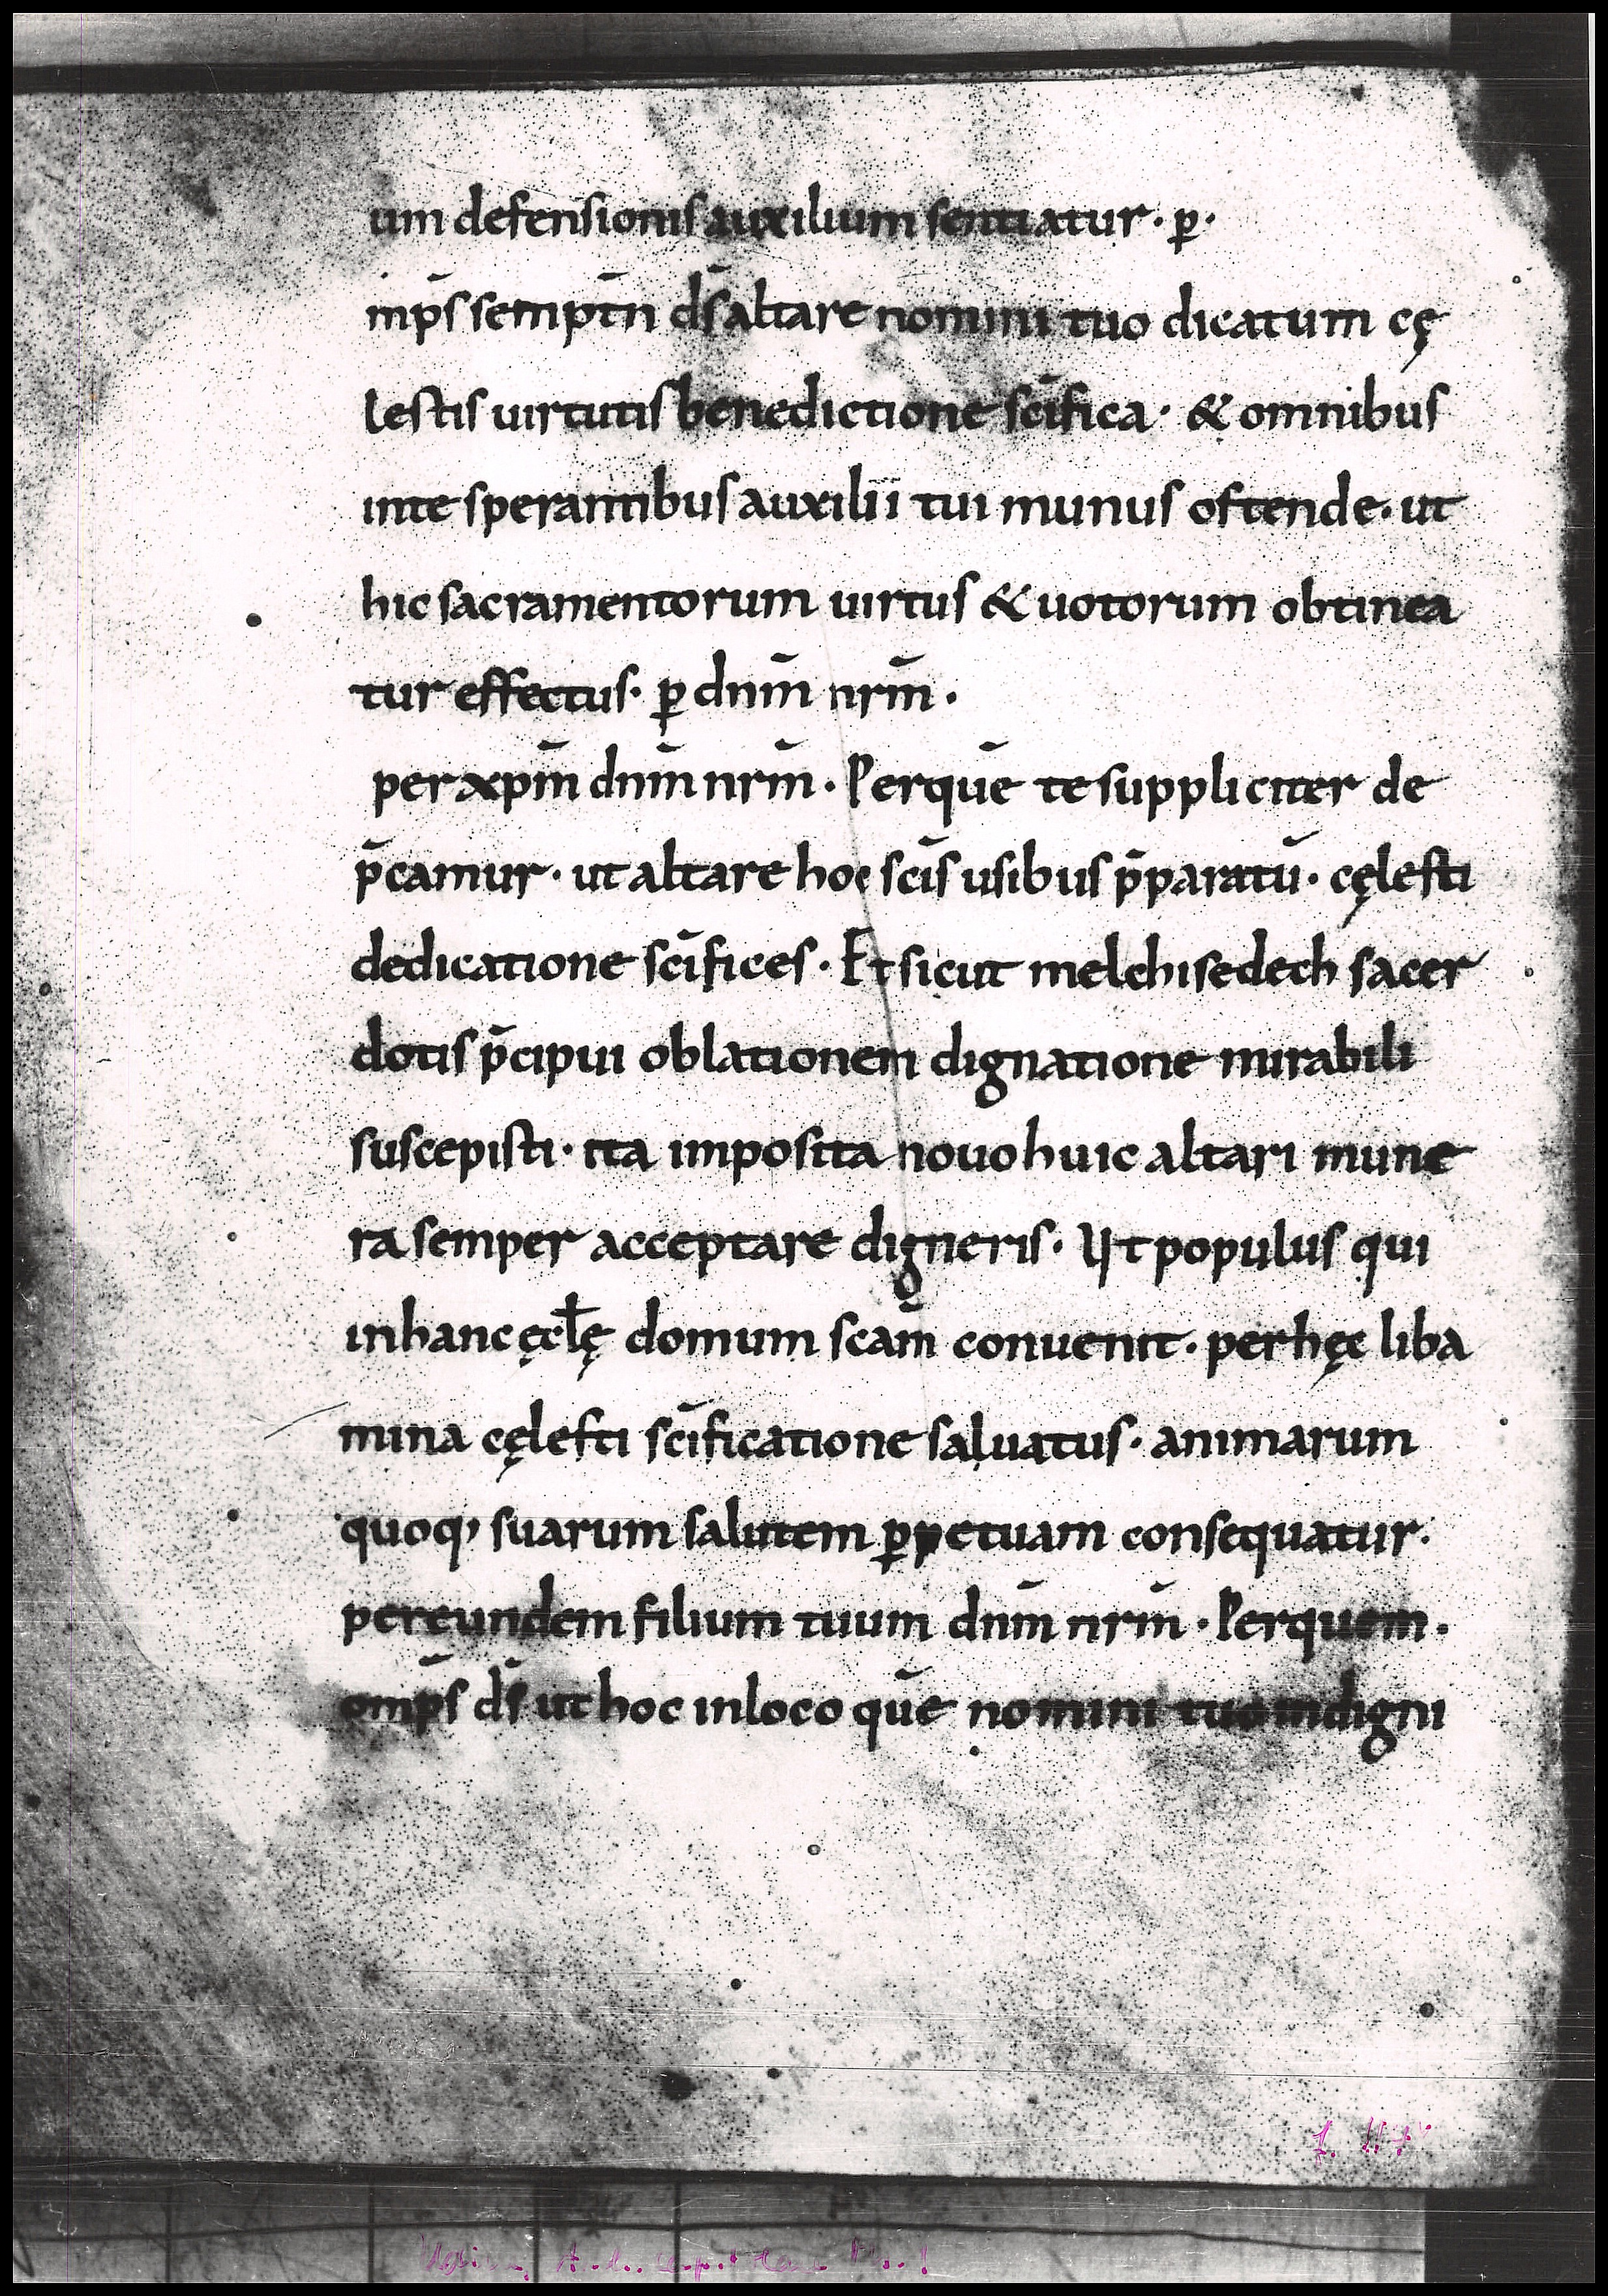 um defensionis auxilium sentiatur · p̲ ·
mp̄s sempt̄n d̄s altare nomini tuo dicatum cę
lestis uirtutis benedictione sc̄ifica · & omnibus
inte sperantibus auxilii tui munus ostende · ut
hic sacramentorum uirtus & uotorum obtinea
tur effectus · ꝑ dn̄m nr̄m ·
per xp̄m dn̄m nr̄m · Perquē te suppliciter de
p̄camur · ut altare hoc sc̄is usibus p̄paratū · cęlesti
dedicatione sc̄ifices · Et sicut melchisedech sacer
dotis p̄cipui oblationem dignatione mirabili
suscepisti · ita imposita nouo huic altari mune
ra semper acceptare digneris · Ut populus qui
inhanc ęccłę domum sc̄am conuenit · per hęc liba
mina cęlesti sc̄ificatione saluatus · animarum
quoq; suarum salutem ꝑpetuam consequatur ·
per eundem filium tuum dn̄m nr̄m · Perquem ·
omp̄s d̄s ut hoc inloco quē nomini tuo indigni